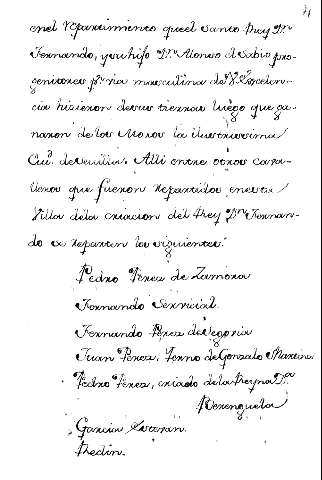 4
enel Repartimiento queel santo Rey Dn.
Fernando, y su hijo Dn. Alonso el Sabio pro-
genitores pr. via masculina de V. Excelen-
cia hicieron desus tierras luego que ga-
naron delos Moros la ilustrisima
Ciud. deSevilla. Alli entre otros Cava-
lleros que fueron Repartidos enesta
Villa dela criacion del Rey Dn. Fernan-
do se reparten los siguientes:
Pedro Perez de Zamora
Fernando Servicial.
Fernando Perez deSegovia
Juan Perez, Yerno deGonzalo Martinez
Pedro Perez, criado dela Reyna Da.
Berenguela
Garcia Esteran.
Redin.